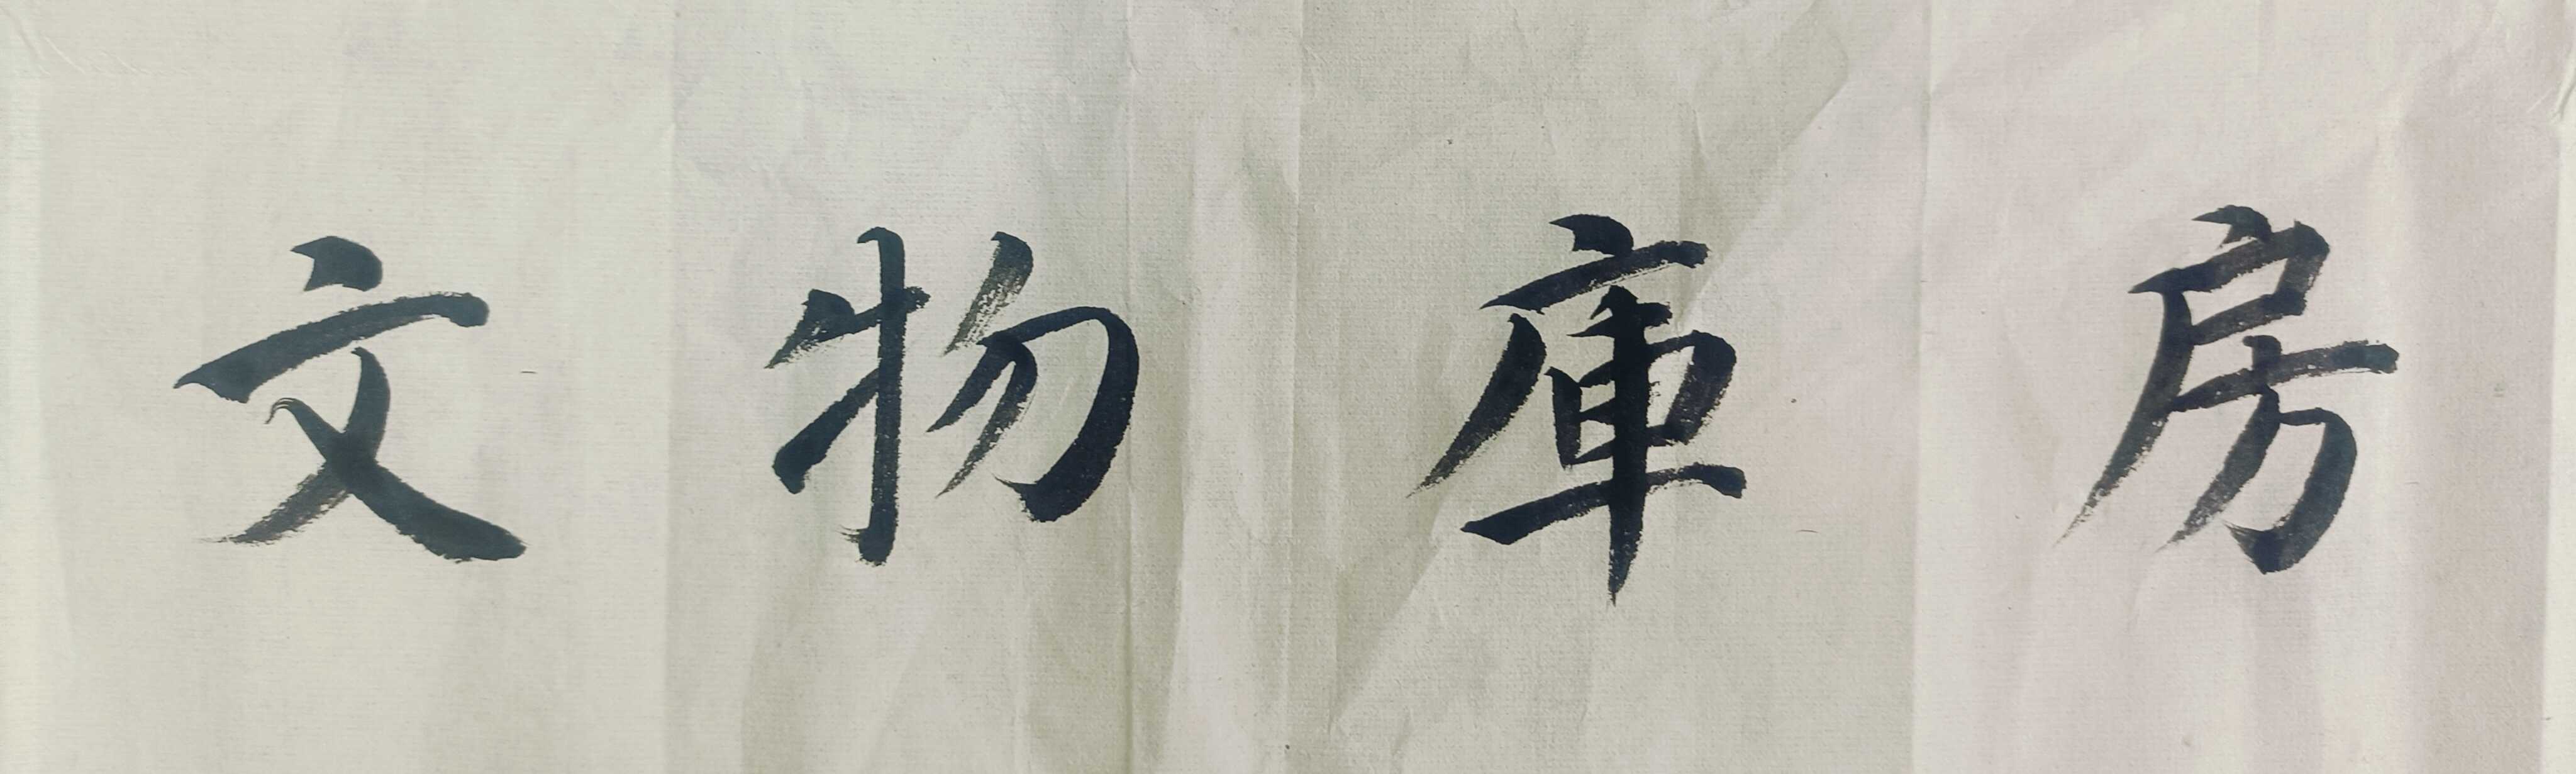 文物庫房